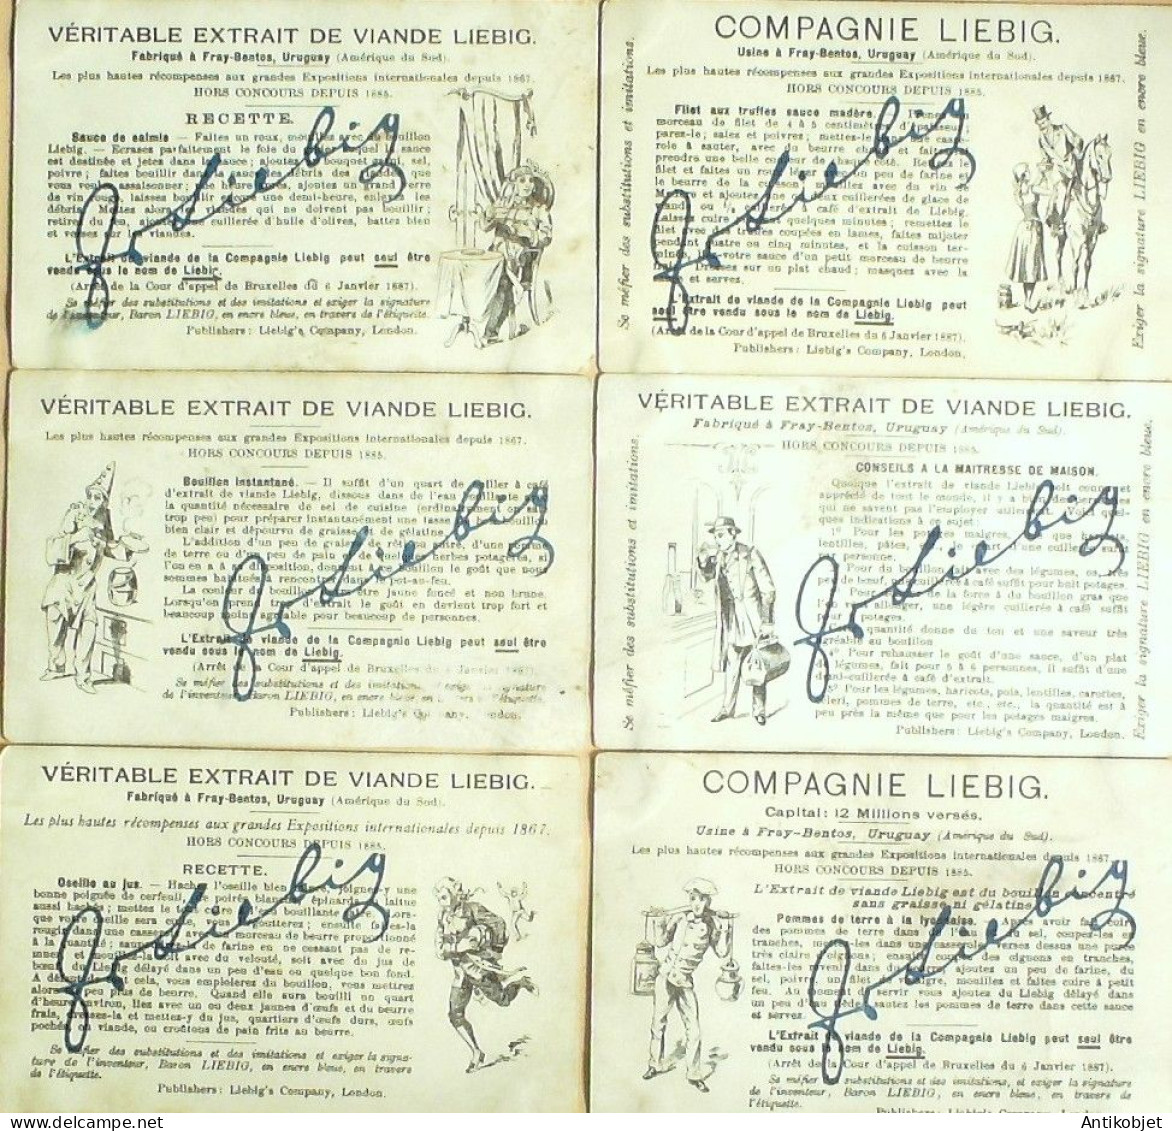 VÉRITABLE EXTRAIT DE VIANDE LIEBIG.
Fabriqué à Fray-Bentos, Uruguay (Amérique du Sud).
Les plus hautes récompenses aux grandes Expositions internationales depuis 1867.
HORS CONCOURS DEPUIS 1885.
RECETTE.
Sauce de salmis — Faites un roux, mouillez avec du bouillon
Liebig. — Ecrasez parfaitement le foie du quel la sauce
est destinée et jetez dans la sauce; ajoutez bouquet garni, sel,
poivre; faites bouillir dans sauce les débris des viandes que
vous voulez assaisonner; une heure après, ajoutez un grand verre
de vin rouge, laissez bouillir encore une demi-heure, enlevez les
débris. Mettez alors les viandes qui ne doivent pas bouillir;
retirez du feu, ajoutez une cuillerée d'huile d'olives, battez bien
et versez sur les viandes.
L'Extrait de viande de la Compagnie Liebig peut seul être
vendu sous le nom de Liebig.
(Arrêt de la Cour d'appel de Bruxelles du 6 Janvier 1887).
Se méfier des substitutions et des imitations et exiger la signature
de l'inventeur, Baron LIEBIG, en encre bleue, en travers de l'étiquette.
Publishers: Liebig's Company, London.
COMPAGNIE LIEBIG.
Usine à Fray-Bentos, Uruguay (Amérique du Sud).
Les plus hautes récompenses aux grandes Expositions internationales depuis 1867.
HORS CONCOURS DEPUIS 1885.
Filet aux truffes sauce madère. — Prenez un
morceau de filet de 4 à 5 centimètres d'épaisseur;
parez-le; salez et poivrez; mettez-le dans une casse-
role à sauter, avec du beurre chaud et faites-lui
prendre une belle couleur de chaque côté. Retirez le
filet et faites un roux léger un peu de farine et
le beurre de la cuisson; mouillez avec du vin de
Madère et ajoutez une ou deux cuillerées de glace de
viande ou ½ cuillerée à café d'extrait de Liebig.
Laissez cuire quelques minutes; remettez le
filet avec des truffes coupées en lames, faites mijoter
pendant quatre ou cinq minutes, et la cuisson ter-
minée, votre sauce d'un petit morceau de beurre
Dressez sur un plat chaud; masquez avec la
sauce et servez.
L'Extrait de viande de la Compagnie Liebig peut
seul être vendu sous le nom de Liebig.
(Arrêt de la Cour d'appel de Bruxelles du 6 Janvier 1887).
Publishers: Liebig's Company, London.
Se méfier des substitutions et imitations.
Exiger la signature LIEBIG en encre bleue.
VÉRITABLE EXTRAIT DE VIANDE LIEBIG.
Les plus hautes récompenses aux grandes Expositions internationales depuis 1867.
HORS CONCOURS DEPUIS 1885.
Bouillon instantané. — Il suffit d'un quart de cuiller à café
d'extrait de viande Liebig, dissous dans de l'eau bouillante avec
la quantité nécessaire de sel de cuisine (ordinairement on sale
trop peu) pour préparer instantanément une tasse de bouillon
bien clair et dépourvu de graisse et de gélatine.
L'addition d'un peu de graisse de rôti ou autre, d'une pomme
de terre ou d'un peu de pain et de quelques herbes potagères, si
l'on en a à sa disposition, donnent à ce bouillon le goût que nous
sommes habitués à rencontrer dans le pot-au-feu.
La couleur du bouillon doit être jaune foncé et non brune.
Lorsqu'on prend trop d'extrait le goût en devient trop fort et
beaucoup moins agréable pour beaucoup de personnes.
L'Extrait de viande de la Compagnie Liebig peut seul être
vendu sous le nom de Liebig.
(Arrêt de la Cour d'appel de Bruxelles du 6 Janvier 1887).
Se méfier des substitutions et des imitations et exiger la signature
de l'inventeur, Baron LIEBIG, en encre bleue, en travers de l'étiquette.
Publishers: Liebig's Company, London.
VÉRITABLE EXTRAIT DE VIANDE LIEBIG.
Fabriqué à Fray-Bentos, Uruguay (Amérique du Sud).
HORS CONCOURS DEPUIS 1885.
CONSEILS A LA MAITRESSE DE MAISON.
Quoique l'extrait de viande Liebig soit connu et
apprécié de tout le monde, il y a bien des personnes
qui ne savent pas l'employer utilement. Voici quel-
ques indications à ce sujet:
1° Pour les potages maigres, que haricots,
lentilles, pâtes, le quart d'une cuillerée suffit
par personne.
Pour du bouillon fait avec des légumes, os, très
peu de bœuf, une cuillerée à café suffit pour huit potages.
Pour donner de la force à du bouillon gras que
l'on veut allonger, une légère cuillerée à café suffit
pour potages.
quantité donne du ton et une saveur très
agréable au bouillon
4° Pour rehausser le goût d'une sauce, d'un plat
de légumes, fait pour 5 à 6 personnes, il suffit d'une
demi-cuillerée à café d'extrait.
5° Pour les légumes, haricots, pois, lentilles, carottes,
céleri, pommes de terre, etc., etc., la quantité est à
peu près la même que pour les potages maigres.
Publishers: Liebig's Company, London.
Se méfier des substitutions et imitations.
Exiger la signature LIEBIG en encre bleue.
VÉRITABLE EXTRAIT DE VIANDE LIEBIG.
Fabriqué à Fray-Bentos, Uruguay (Amérique du Sud).
Les plus hautes récompenses aux grandes Expositions internationales depuis 1867.
HORS CONCOURS DEPUIS 1885.
RECETTE.
Oseille au jus. — Hachez l'oseille bien lavée, joignez-y une
bonne poignée de cerfeuil, de poirée blanche, épinards et laitue
aussi hachés; mettez le tout cuire à l'eau bouillante Lors-
que votre oseille sera cuite, vous l'égoutterez; ensuite faites-la
rougir dans une casserole avec un morceau de beurre proportionné
à la quantité; saupoudrez-la de farine en ne cessant pas de re-
muer, et mouillez-la soit avec du velouté, soit avec du jus de
bœuf, du Liebig délayé dans un peu d'eau ou quelque bon fond.
défaut de cela, vous emploierez du bouillon, vous mettrez
alors un peu plus de beurre. Quand elle aura bouilli un quart
d'heure environ, liez avec un ou deux jaunes d'œufs et du beurre
frais, dressez-la et mettez-y du jus, quartiers d'œufs durs, œufs
pochés, ou viande, ou croûtons de pain frits au beurre.
Se méfier des substitutions et des imitations et exiger la signa-
ture de l'inventeur, Baron LIEBIG, en encre bleue, en travers
de l'étiquette.
Publishers: Liebig's Company, London.
COMPAGNIE LIEBIG.
Capital: 12 Millions versés.
Usine à Fray-Bentos, Uruguay (Amérique du Sud).
Les plus hautes récompenses aux grandes Expositions internationales depuis 1867
HORS CONCOURS DEPUIS 1885.
L'Extrait de viande Liebig est du bouillon concentré
sans graisse ni gélatine.
Pommes de terre à la lyonnaise. — Après avoir fait cuire
des pommes de terre dans de l'eau au sel, coupez-les en
tranches, mettez-les dans une casserole; versez dessus une purée
très claire d'oignons; ensuite coupez des oignons en tranches,
faites-les revenir dans du beurre, ajoutez un peu de farine, du
sel, poivre, un filet de vinaigre, mouillez et faites cuire à petit
feu. Au moment de servir vous ajoutez du Liebig délayé dans
un peu d'eau tiède; sautez les pommes de terre dans cette sauce
et servez.
L'Extrait de viande de la Compagnie Liebig peut seul être
vendu sous le nom de Liebig.
(Arrêt de la Cour d'appel de Bruxelles du 6 Janvier 1887)
Se méfier des substitutions et des imitations, et exiger la signature
de l'inventeur, Baron LIEBIG, en encre bleue, en travers de
l'étiquette.
Publishers: Liebig's Company, London.
Antikobjet